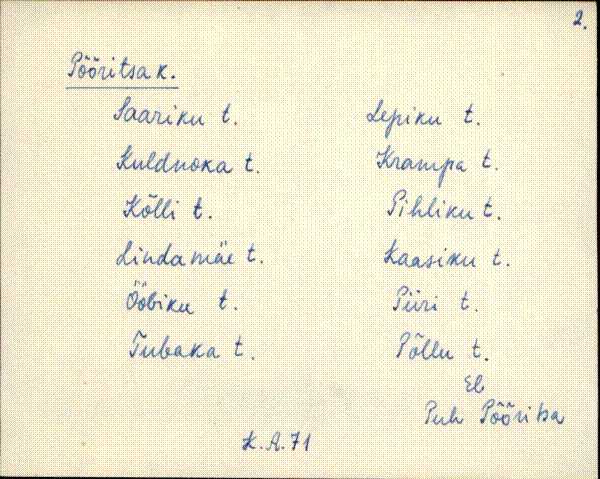 2.
Pööritsa k.
Saariku t.
Kuldnoka t.
Kõlli t.
Lindamäe t.
Ööbiku t.
Tubaka t.
Lepiku t.
Krampa t.
Pihliku t.
Kaasiku t.
Piiri t.
Põllu t.
El
Puh Pööritsa
K.A.71